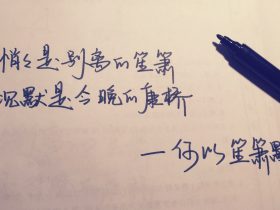 悄悄是别离的笙箫
沉默是今晚的康桥
—何以笙箫默